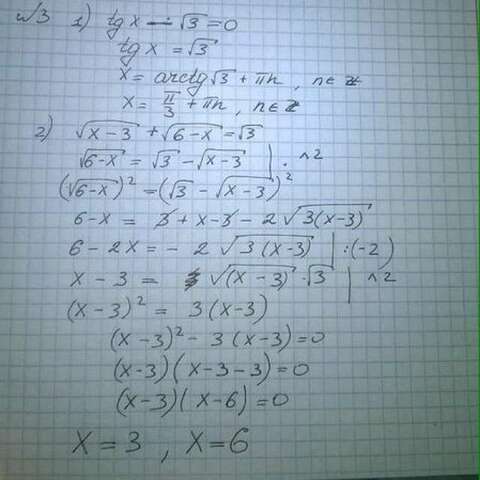 №3 1) tg x - √3 = 0
tg x = √3
x = arctg √3 + πn, n ∈ Z
x = π/3 + πn, n ∈ Z
2) √(x-3) + √(6-x) = √3
√(6-x) = √3 - √(x-3) | ^2
(√(6-x))² = (√3 - √(x-3))²
6-x = 3 + x-3 - 2√(3(x-3))
6-2x = -2√(3(x-3)) | :(-2)
x-3 = √(x-3) · √3 | ^2
(x-3)² = 3(x-3)
(x-3)² - 3(x-3) = 0
(x-3)(x-3-3) = 0
(x-3)(x-6) = 0
x = 3, x = 6